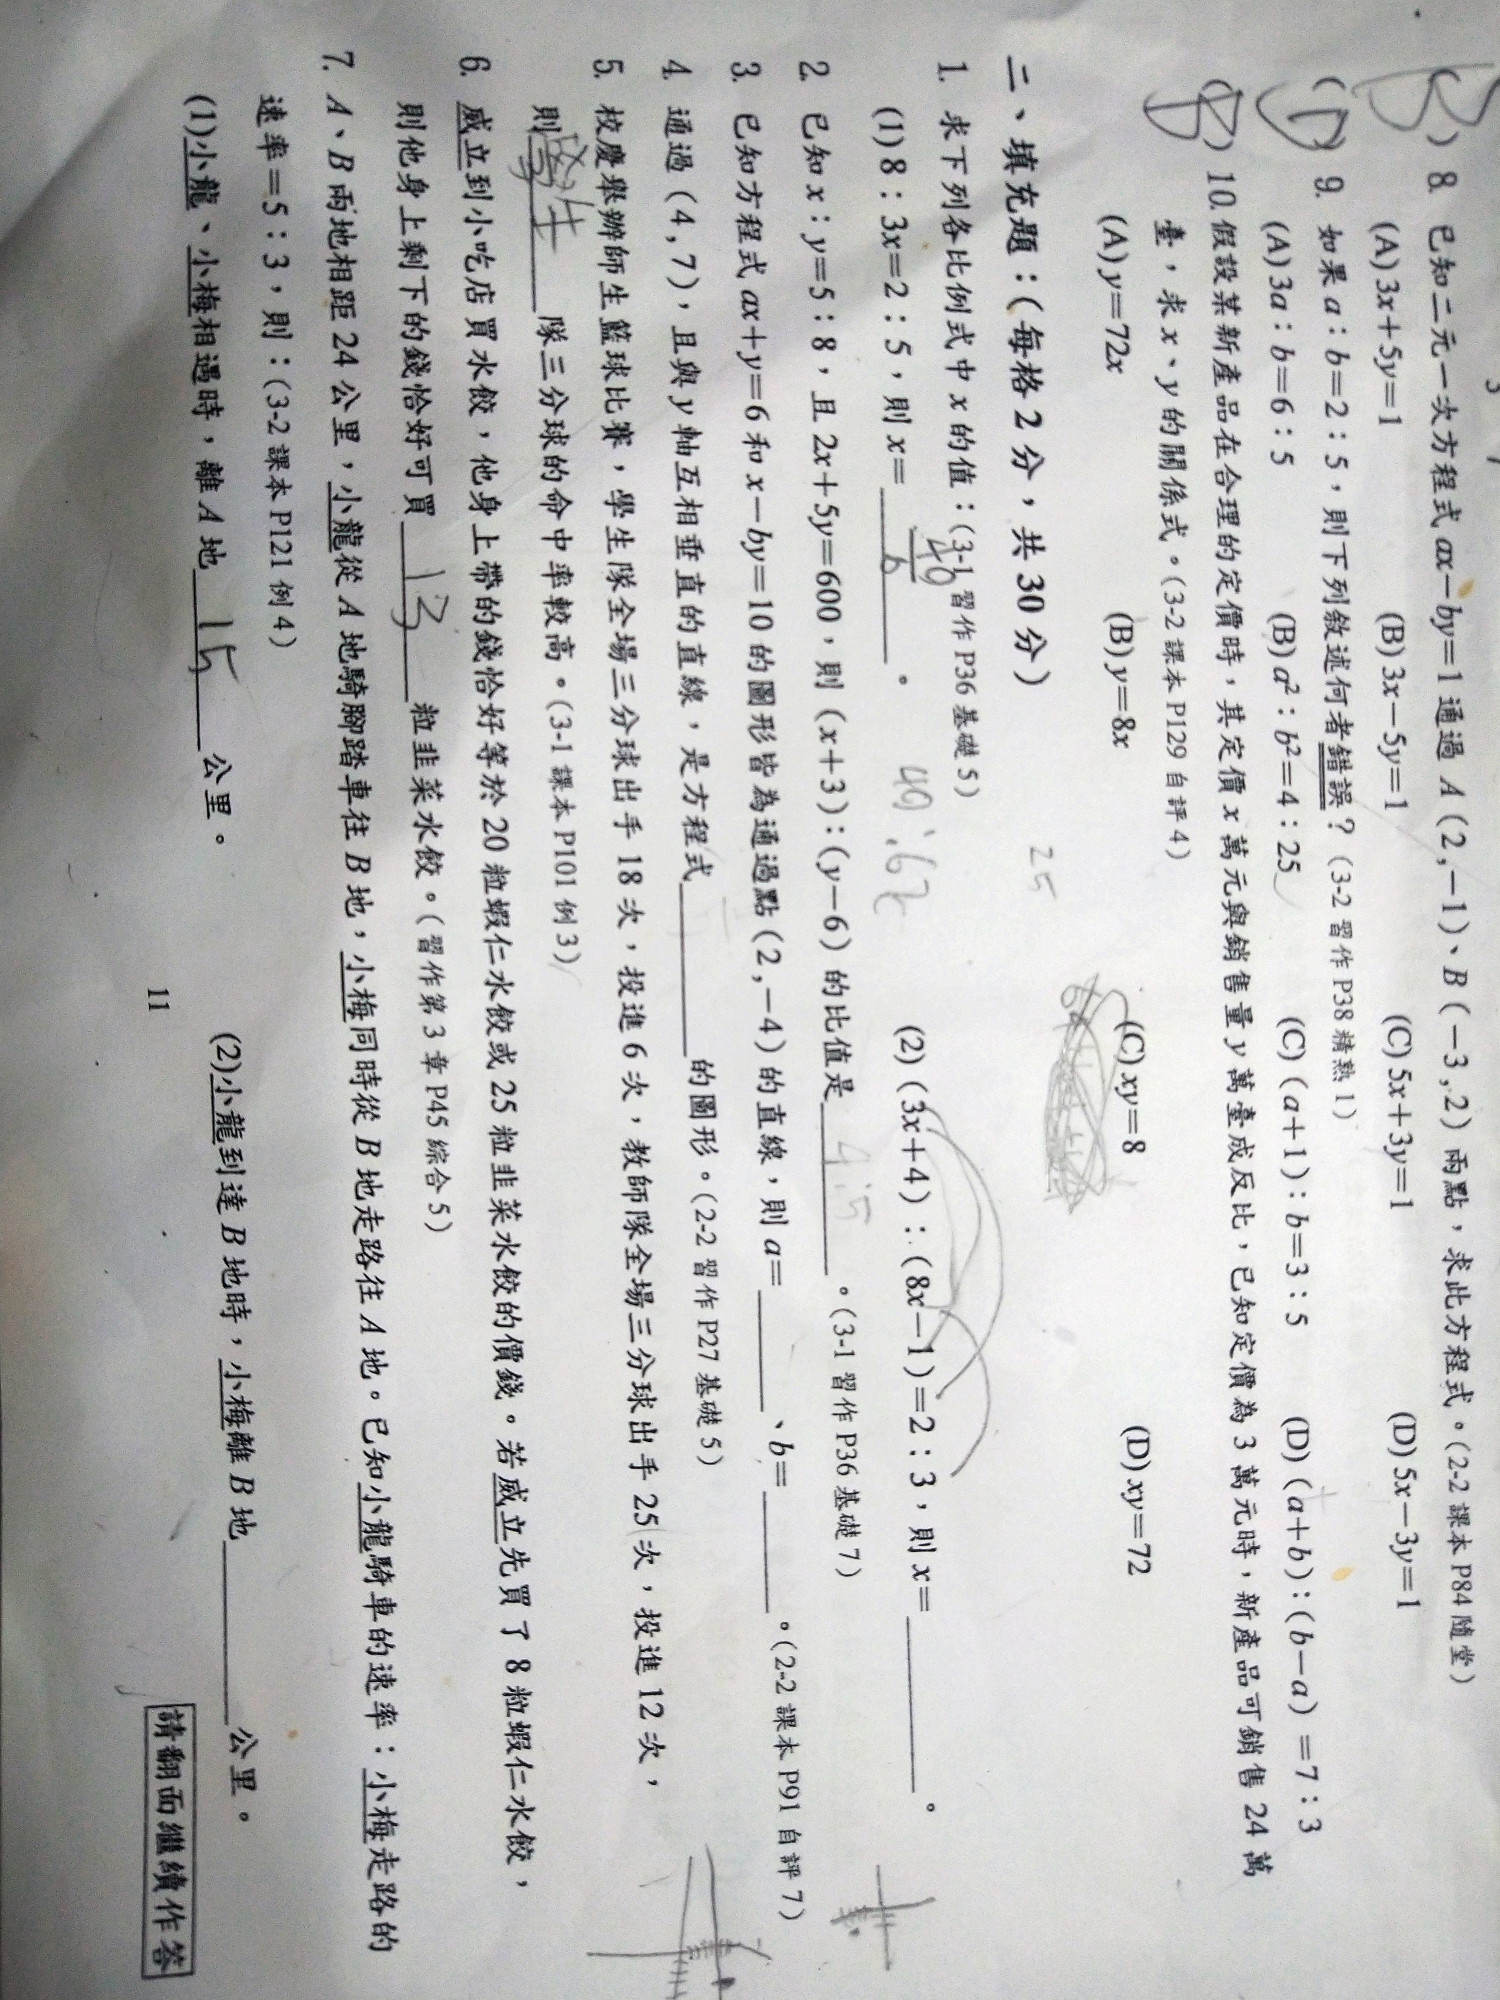 8. 已知二元一次方程式 ax－by＝1 通過 A(2,－1)、B(－3,2) 兩點，求此方程式。(2-2 課本 P84 隨堂)
(A) 3x＋5y＝1 (B) 3x－5y＝1 (C) 5x＋3y＝1 (D) 5x－3y＝1
(D) 9. 如果 a：b＝2：5，則下列敘述何者錯誤？(3-2 習作 P38 精熟 1)
(A) 3a：b＝6：5 (B) a²：b²＝4：25 (C) (a＋1)：b＝3：5 (D) (a＋b)：(b－a)＝7：3
10. 假設某新產品在合理的定價時，其定價 x 萬元與銷售量 y 萬臺成反比，已知定價為 3 萬元時，新產品可銷售 24 萬
臺，求 x、y 的關係式。(3-2 課本 P129 自評 4)
(A) y＝72x (B) y＝8x (C) xy＝8 (D) xy＝72
二、填充題：(每格 2 分，共 30 分)
25
1. 求下列各比例式中 x 的值：(3-1 習作 P36 基礎 5)
(1) 8：3x＝2：5，則 x＝40/6。 40:6x (2) (3x＋4)：(8x－1)＝2：3，則 x＝＿＿＿。
2. 已知 x：y＝5：8，且 2x＋5y＝600，則 (x＋3)：(y－6) 的比值是＿＿＿。(3-1 習作 P36 基礎 7)
3. 已知方程式 ax＋y＝6 和 x－by＝10 的圖形皆為通過點 (2,－4) 的直線，則 a＝＿＿＿、b＝＿＿＿。(2-2 課本 P91 自評 7)
4. 通過 (4,7)，且與 y 軸互相垂直的直線，是方程式＿＿＿的圖形。(2-2 習作 P27 基礎 5)
5. 校慶舉辦師生籃球比賽，學生隊全場三分球出手 18 次，投進 6 次，教師隊全場三分球出手 25 次，投進 12 次，
則學生隊三分球的命中率較高。(3-1 課本 P101 例 3)
6. 威立到小吃店買水餃，他身上帶的錢恰好等於 20 粒蝦仁水餃或 25 粒韭菜水餃的價錢。若威立先買了 8 粒蝦仁水餃，
則他身上剩下的錢恰好可買 13 粒韭菜水餃。(習作第 3 章 P45 綜合 5)
7. A、B 兩地相距 24 公里，小龍從 A 地騎腳踏車往 B 地，小梅同時從 B 地走路往 A 地。已知小龍騎車的速率：小梅走路的
速率＝5：3，則：(3-2 課本 P121 例 4)
(1) 小龍、小梅相遇時，離 A 地 15 公里。 (2) 小龍到達 B 地時，小梅離 B 地＿＿＿公里。
11
請翻面繼續作答